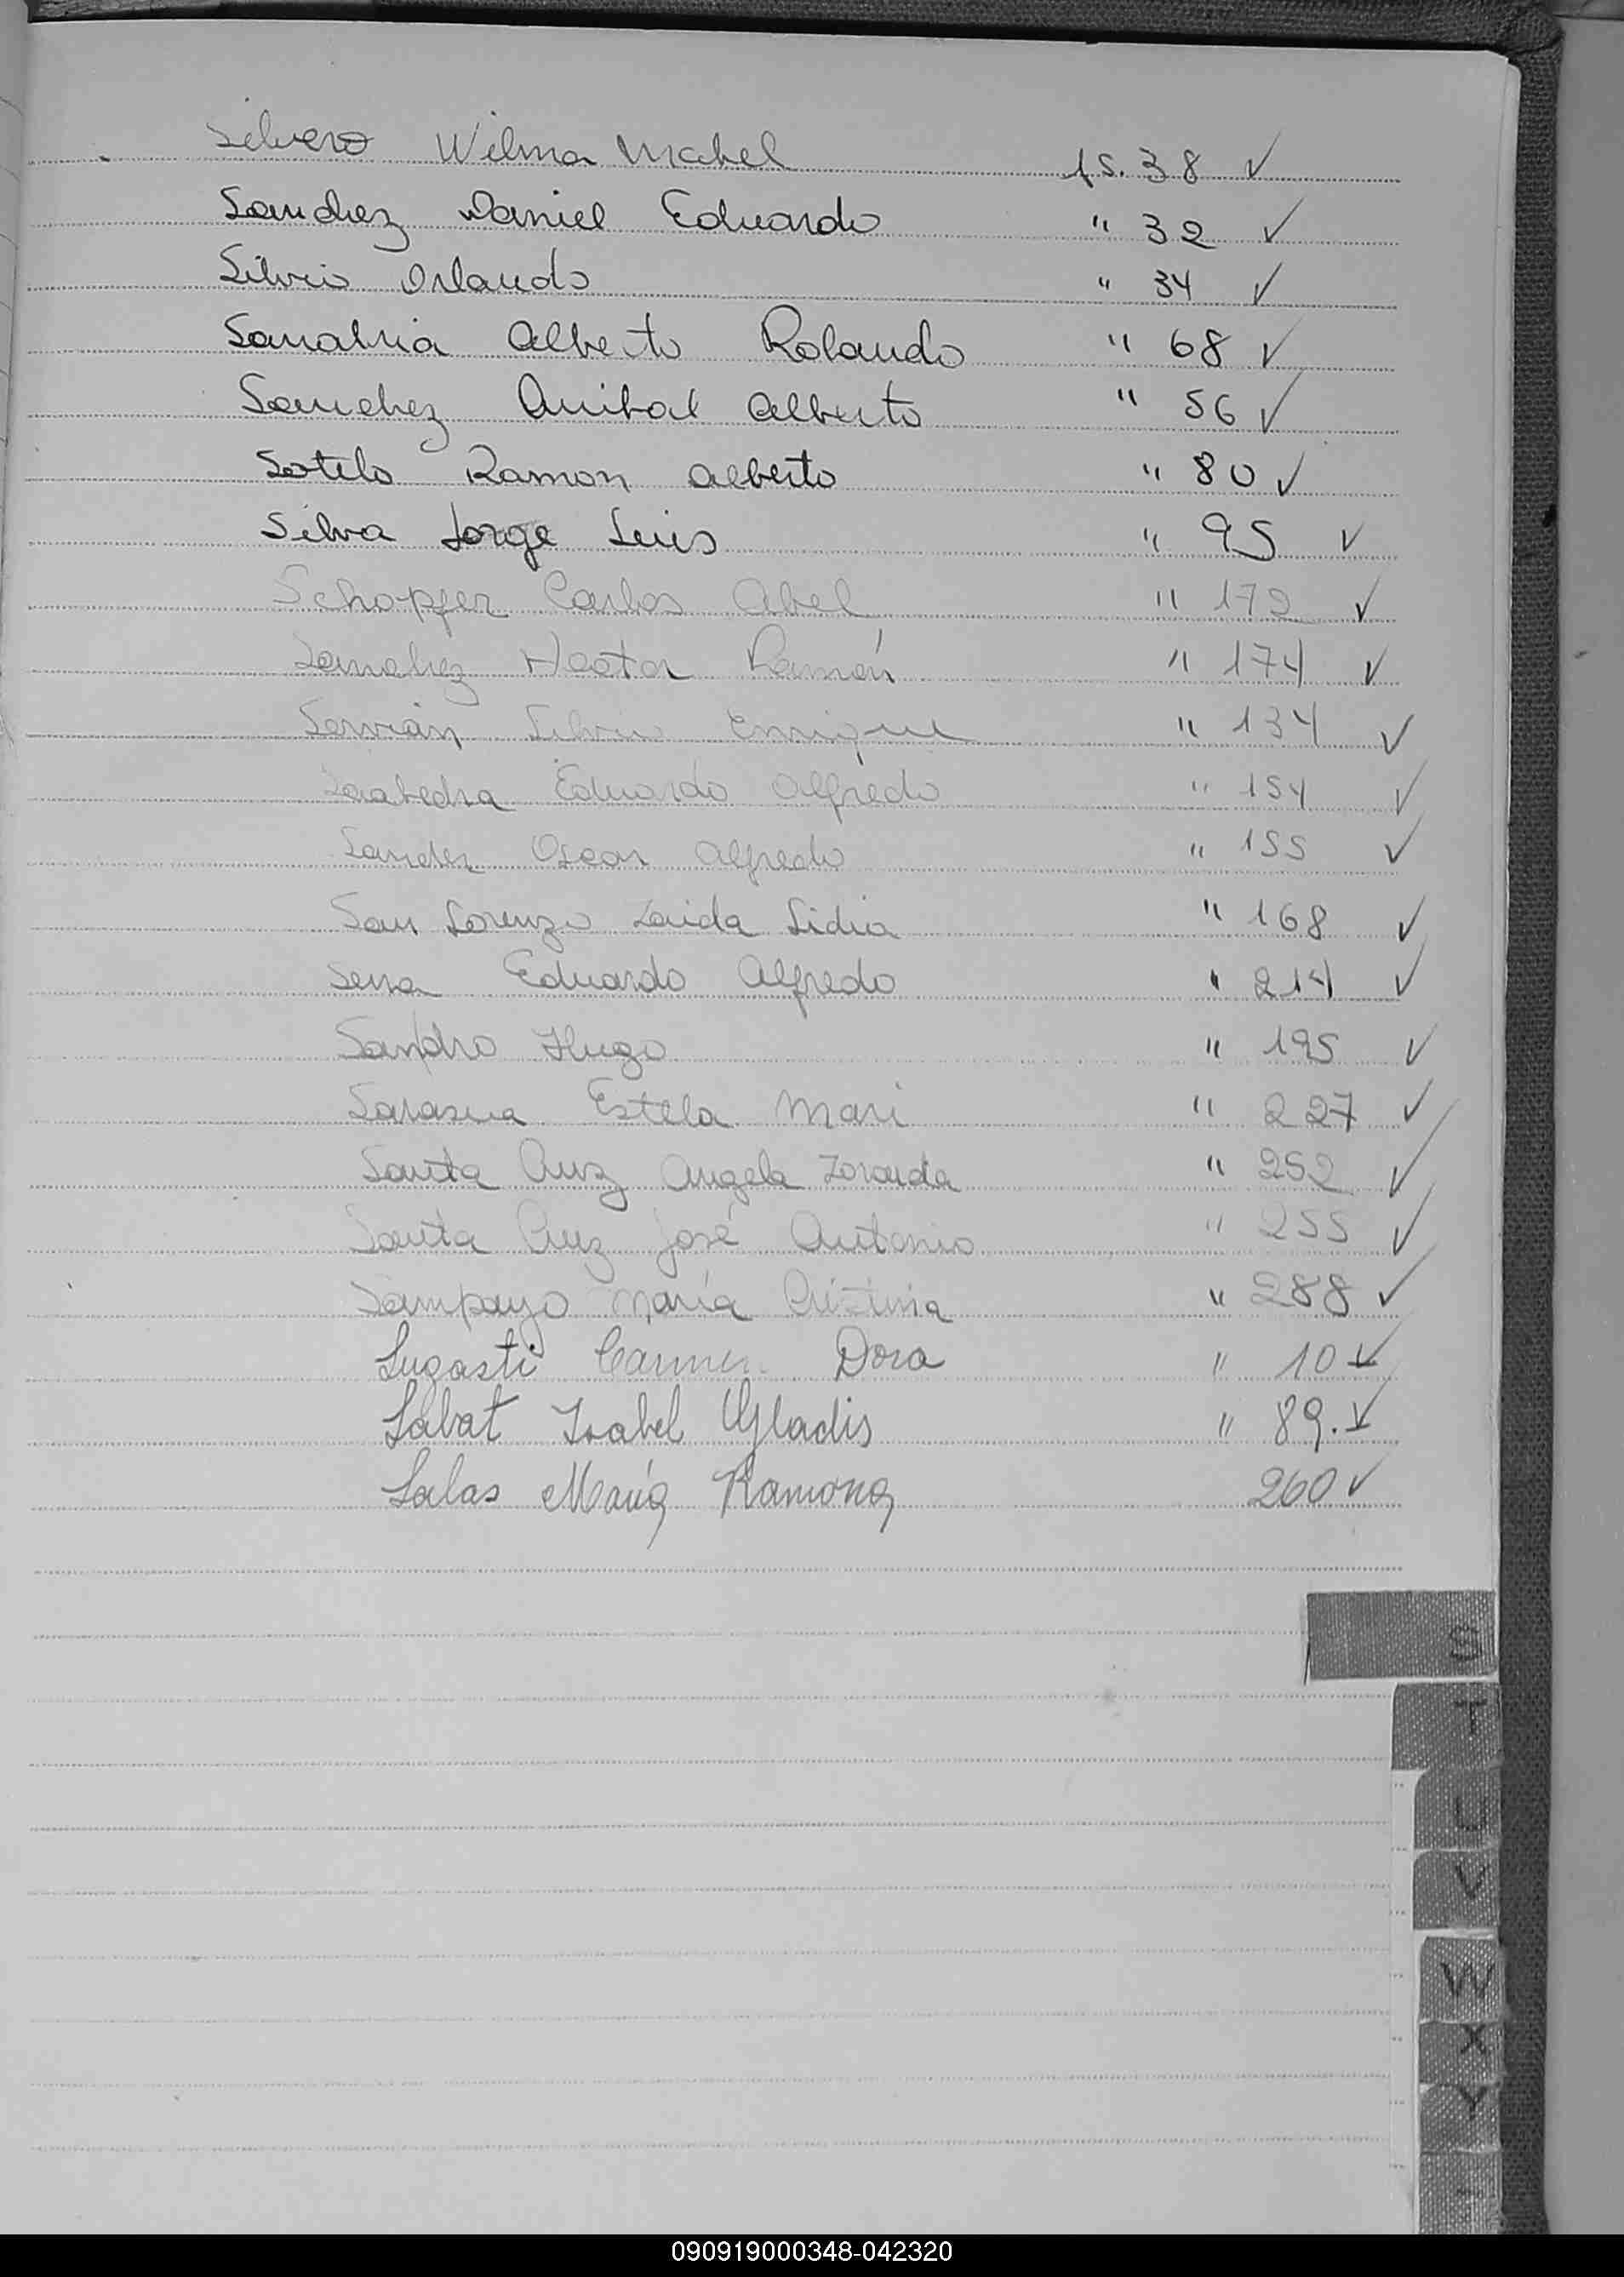 Silvero Wilma Mabel fs. 38 ✓
Sanchez Daniel Eduardo " 32 ✓
Silvio Orlando " 34 ✓
Sanabria Alberto Rolando " 68 ✓
Sanchez Anibal Alberto " 56 ✓
Sotelo Ramon Alberto " 80 ✓
Silva Jorge Luis " 95 ✓
Schopfer Carlos Abel " 172 ✓
Sanchez Hector Ramón " 174 ✓
Servián Silvio Enrique " 134 ✓
Saabedra Eduardo Alfredo " 154 ✓
Sander Oscar Alfredo " 155 ✓
San Lorenzo Zaida Lidia " 168 ✓
Sena Eduardo Alfredo " 214 ✓
Sandro Hugo " 195 ✓
Sarasua Estela Mari " 227 ✓
Santa Cruz Angela Zoraida " 252 ✓
Santa Cruz José Antonio " 255 ✓
Sampayo María Cristina " 288 ✓
Sugasti Carmen Dora " 10 ✓
Sabat Isabel Gladis " 89. ✓
Salas María Ramona 260 ✓
S
T
U
V
W
X
Y
090919000348-042320